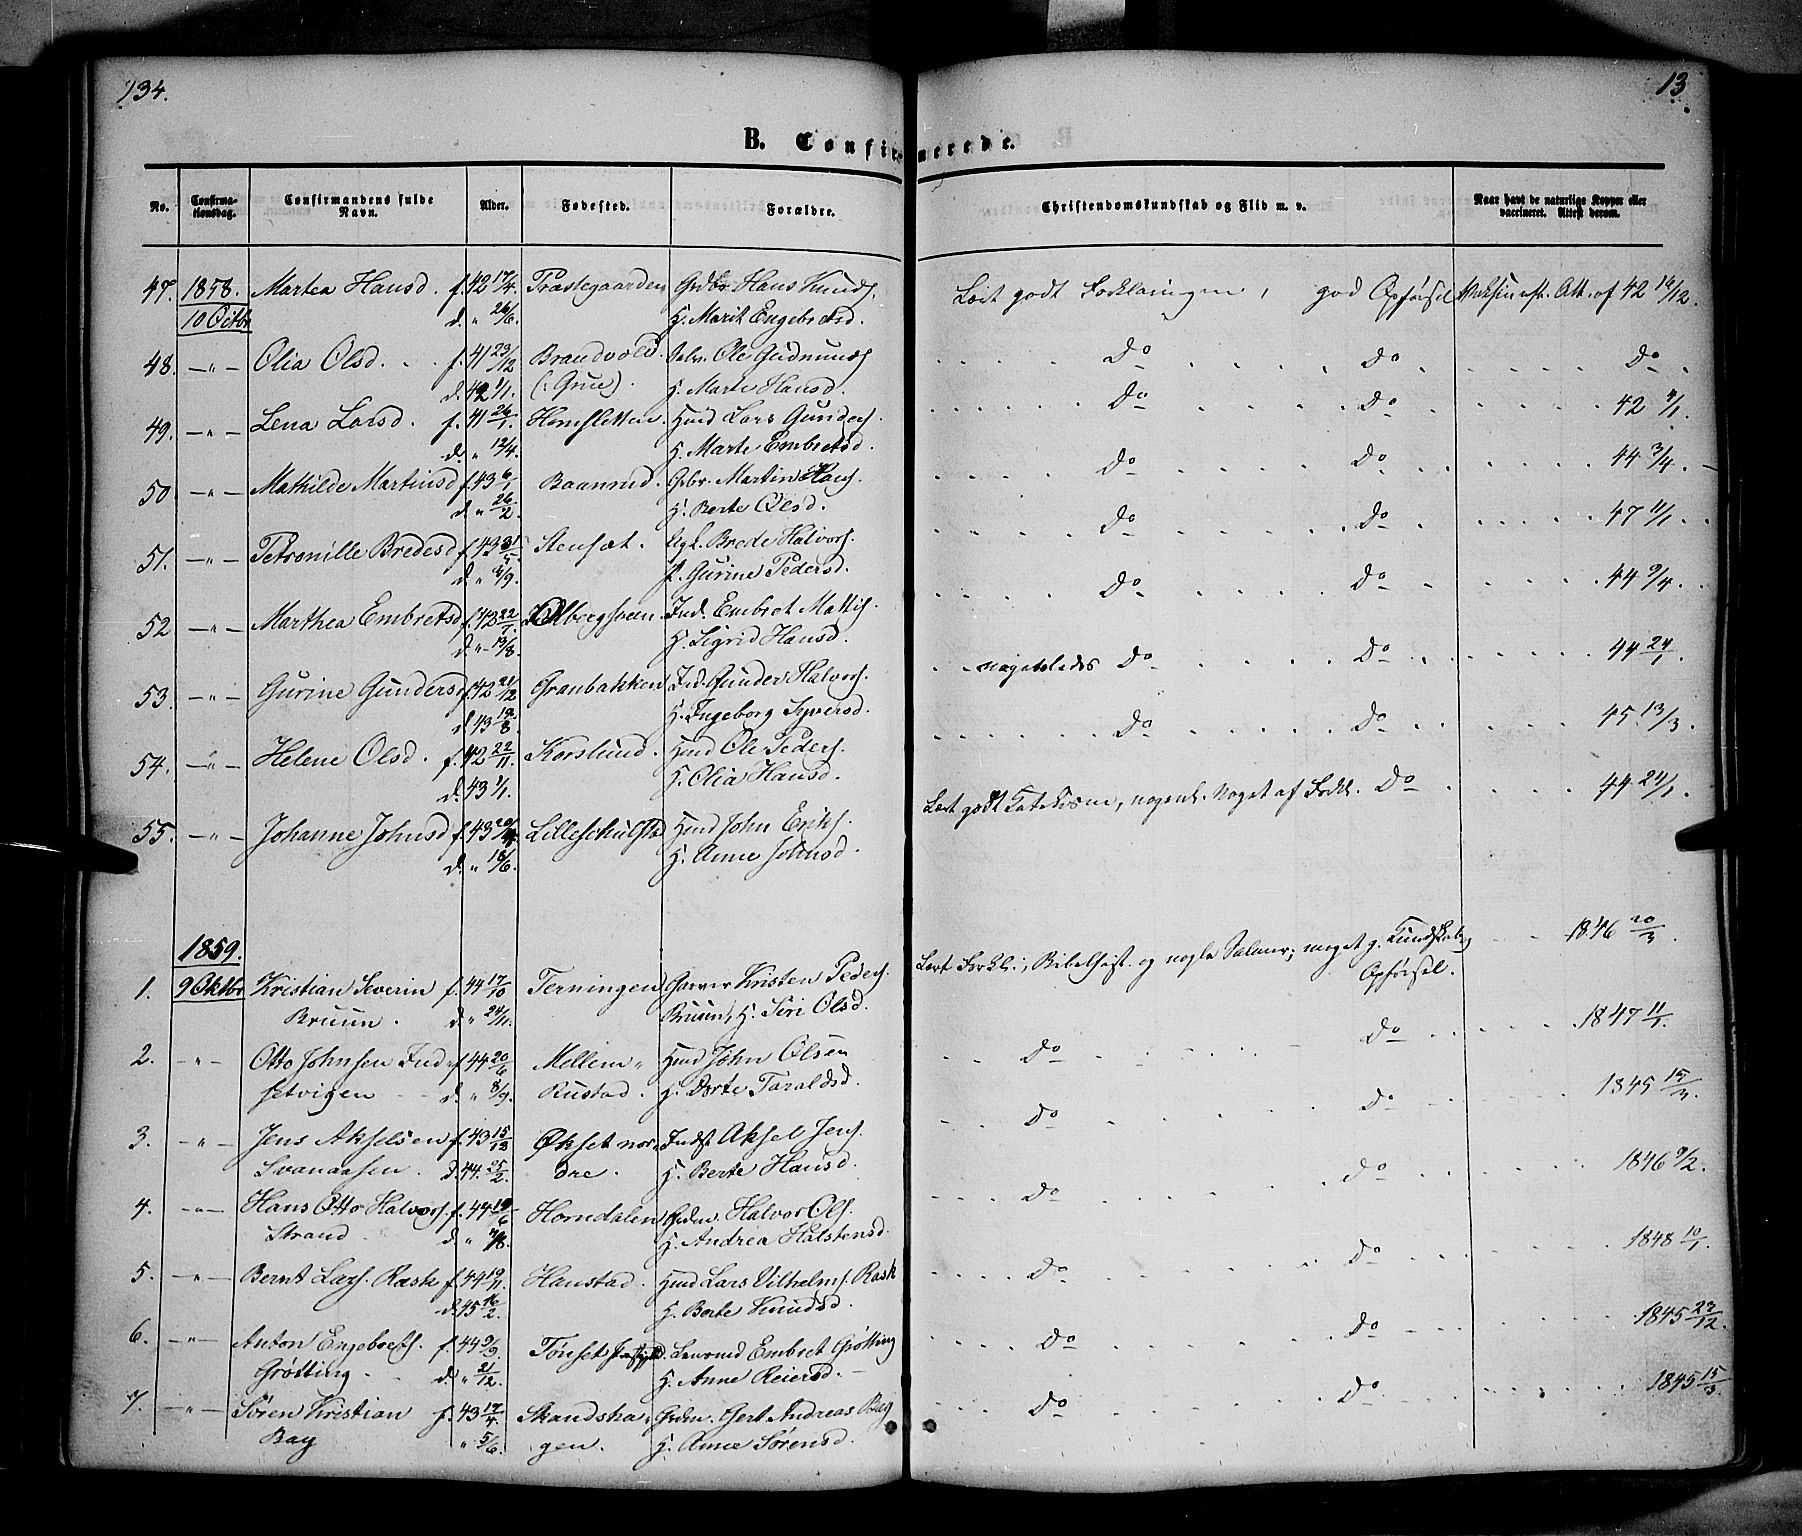 134.
13
B. Confirmerede.
No. Confirmationsdag. Confirmandens fulde Navn. Alder. Fødested. Forældre. Christendomskundskab og Flid m. v. Naar havt de naturlige Kopper eller vaccineret. Attest derom.
47. 1858. Martea Hansd. f. 42 17/4 Præstegaarden Hans Knuds. Lært godt Forklaringen, god Opførsel Att. af 42 16/12.
10 Octbr d. " 26/6. H. Marit Engebretsd.
48. -"- Olia Olsd. f. 41 23/12 Brandvold. Ole Gudmunds. Do Do Do
d. 42 1/1. (: Grue). H. Marte Hansd.
49. -"- Lena Larsd. f. 41 26/1. Hornsletten. Hmd Lars Gunders. Do Do 42 4/1.
d. " 12/4 H. Marte Embretsd.
50. -"- Mathilde Martinsd f. 43 6/1 Baanrud. Gbr. Martin Do Do 44 3/4.
d. " 26/2. H. Berte Olsd.
51. -"- Petronille Bredesd f. 43 31/5. Stensæt. Brede Halvors. Do Do 47 11/1.
d. " /9. Gurine Pedersd.
52 -"- Marthea Embretsd f. 43 22/7. Ind. Embret Mattis. Do Do 44 9/4.
d. " 13/8 H. Sigrid Hansd.
53. -"- Gurine Gundersd f. 42 21/12 Granbakken Ind. Gunder Halvors. nogetledes Do Do 44 24/1.
d. 43 19/8. H. Ingeborg Syversd.
54. -"- Helene Olsd. f. 42 22/11. Korslund. Hmd Ole Peders. Do Do 45 13/3.
d. 43 1/1. H. Olia Hansd.
55. -"- Johanne Johnsd f. 43 Lilleschulstad Hmd John Eriks. Lært godt Katekisme, Noget af Forkl. Do 44 24/1.
d. " 18/6. H. Anne Johnsd.
1859.
1. 9 Oktbr Kristian Severin f. 44 17/10 Terningen Garver Kristen Peders. Lært Forkl:, Bibelhist. og nogle Salmer; meget g. Kundskab og 1846 20/3.
Bruun. d. " 24/11. Bruun, H. Siri Olsd. Opførsel.
2. -"- Otto Johnsen Ind- f. 44 20/6 Mellem- Hmd John Olsen Do Do 1847 11/1.
setvigen d. " 8/9. Rustad. H. Dorte Taraldsd.
3. -"- Jens Akselsen f. 43 15/12 Økset nor- Indst Aksel Jens. Do Do 1845 15/3.
Svanaasen. d. 44. 25/2. dre. H. Berte Hansd.
4. -"- Hans Otto Halvors. f. 44 19/6 Horndalen Halvor Ols. Do Do 1846 9/2.
Strand d. " /8. H. Andrea Halstensd.
5. -"- Bernt Lars. Rask f. 44 19/11. Hanstad. Hmd Lars Vilhelms. Rask Do Do 1848 10/1.
d. 45 16/2. H. Berte Knudsd.
6. -"- Anton Engebrets. f. 44 9/9. Tønset Embret Grøtting Do Do 1845 23/12.
Grøtting. d. " 21/12. H. Anne Reiersd.
7. -"- Søren Kristian f. 43 17/4. Skandsha- Gert Andreas Bay Do Do 1845 15/3.
Bay " 5/6. gen. H. Anne Sørensd.